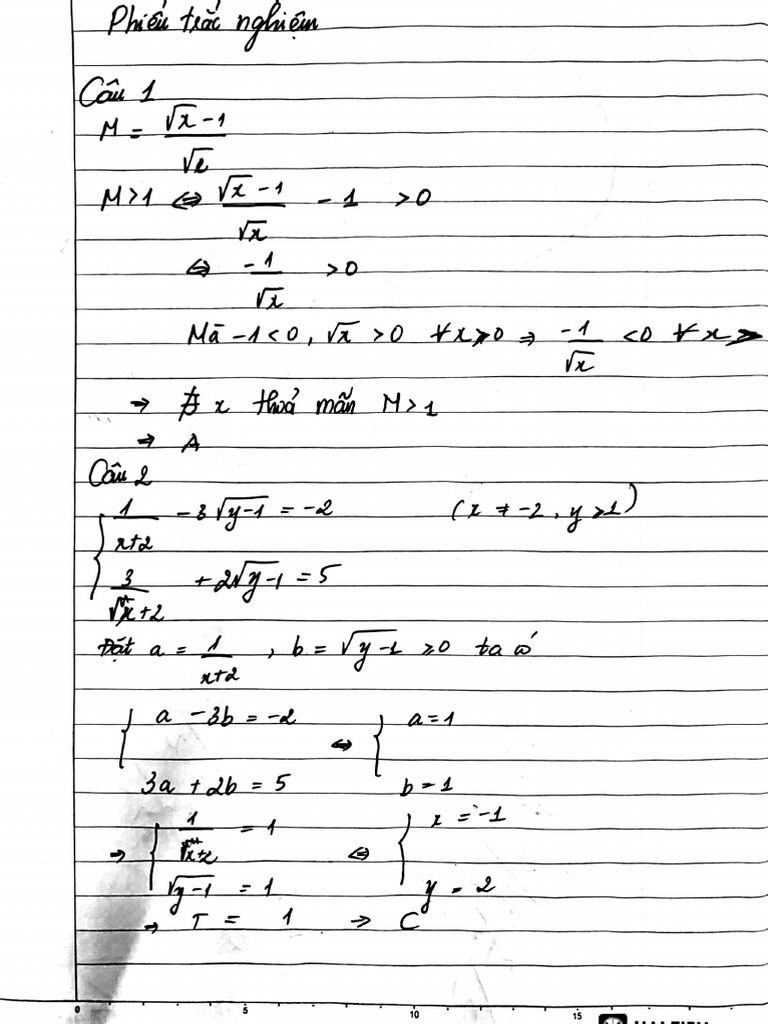 Phiếu trắc nghiệm
Câu 1
M = (√x - 1)/√x
M > 1 ⇔ (√x - 1)/√x - 1 > 0
⇔ -1/√x > 0
Mà -1 < 0, √x > 0 ∀x > 0 ⇒ -1/√x < 0 ∀x >
→ ∄ x thoả mãn M > 1
→ A
Câu 2
{ 1/(x+2) - 3√(y-1) = -2 (x ≠ -2, y ≥ 1)
3/(x+2) + 2√(y-1) = 5
Đặt a = 1/(x+2), b = √(y-1) ≥ 0 ta có
{ a - 3b = -2 ⇔ { a = 1
3a + 2b = 5 b = 1
→ { 1/(x+2) = 1 ⇔ { x = -1
√(y-1) = 1 y = 2
→ T = 1 → C
0 2 5 10 15